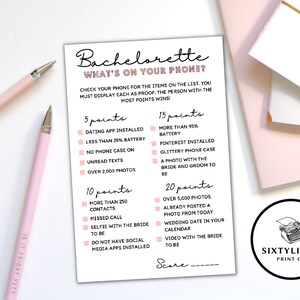 Bachelorette
WHAT'S ON YOUR PHONE?
CHECK YOUR PHONE FOR THE ITEMS ON THE LIST. YOU
MUST DISPLAY EACH AS PROOF. THE PERSON WITH THE
MOST POINTS WINS!
5 points
DATING APP INSTALLED
LESS THAN 25% BATTERY
NO PHONE CASE ON
UNREAD TEXTS
OVER 2,000 PHOTOS
15 points
MORE THAN 95%
BATTERY
PINTEREST INSTALLED
GLITTERY PHONE CASE
A PHOTO WITH THE
BRIDE AND GROOM TO
BE
10 points
MORE THAN 250
CONTACTS
MISSED CALL
SELFIE WITH THE BRIDE
TO BE
DO NOT HAVE SOCIAL
MEDIA APPS INSTALLED
20 points
OVER 5,000 PHOTOS
ALREADY POSTED A
PHOTO FROM TODAY
WEDDING DATE IN YOUR
CALENDAR
VIDEO WITH THE BRIDE
TO BE
Score ______
SIXTYLI
PRINT C